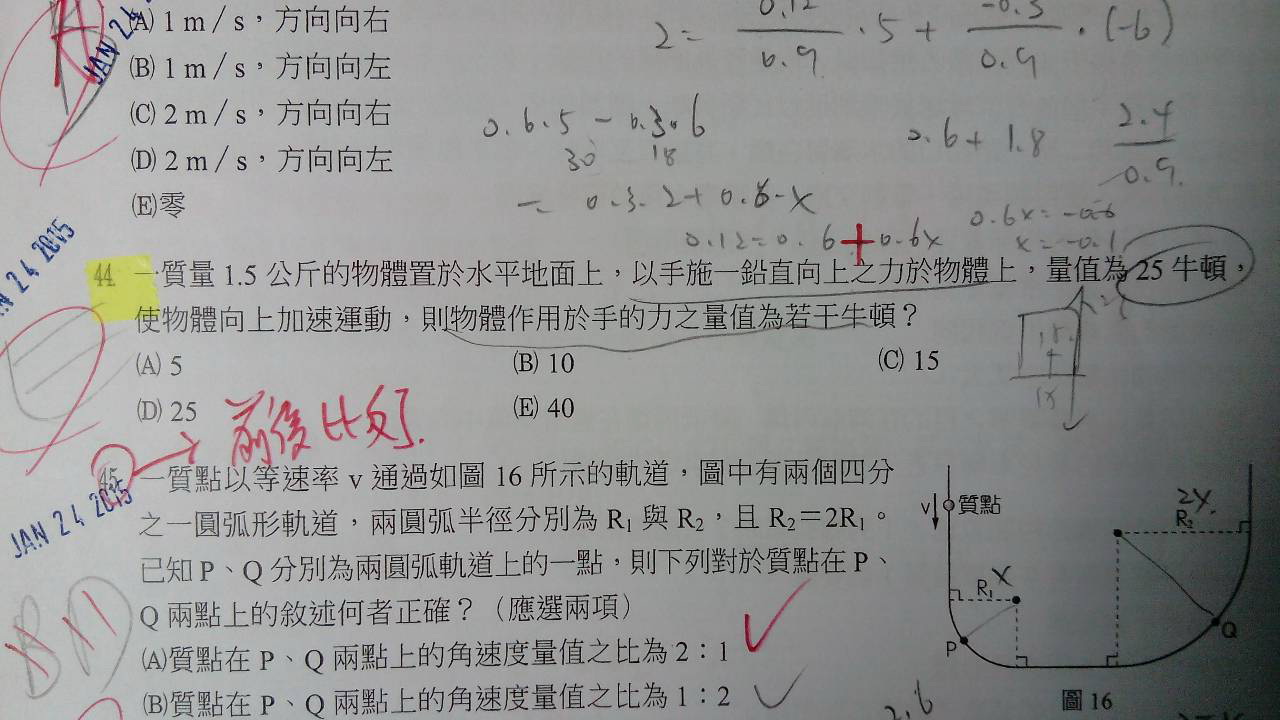 (A) 1 m／s，方向向右
(B) 1 m／s，方向向左
(C) 2 m／s，方向向右
(D) 2 m／s，方向向左
(E)零
2 = 0.12/0.9 · 5 + -0.3/0.9 · (-6)
0.6.5 - 0.3.6
30 18
= 0.3.2 + 0.6·x
0.12 = 0.6 + 0.6x
+ 1.8
2.4/0.9
0.6x = -0.6
x = -0.1
JAN 24
N 24 2015
44. 一質量 1.5 公斤的物體置於水平地面上，以手施一鉛直向上之力於物體上，量值為 25 牛頓，
使物體向上加速運動，則物體作用於手的力之量值為若干牛頓？
(A) 5 (B) 10 (C) 15
(D) 25 (E) 40
前後比反了.
JAN 24 2015
45. 一質點以等速率 v 通過如圖 16 所示的軌道，圖中有兩個四分
之一圓弧形軌道，兩圓弧半徑分別為 R₁ 與 R₂，且 R₂＝2R₁。
已知 P、Q 分別為兩圓弧軌道上的一點，則下列對於質點在 P、
Q 兩點上的敘述何者正確？（應選兩項）
(A)質點在 P、Q 兩點上的角速度量值之比為 2：1
(B)質點在 P、Q 兩點上的角速度量值之比為 1：2
v 質點
R₁ X
2X.
R₂
P
Q
圖 16